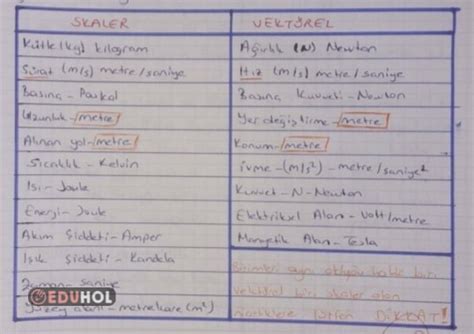 SKALER
Kütle (kg) kilogram
Sürat (m/s) metre/saniye
Basınç - Paskal
Uzunluk - metre
Alınan yol - metre
Sıcaklık - Kelvin
Isı - Joule
Enerji - Joule
Akım Şiddeti - Amper
Işık Şiddeti - Kandela
Zaman - saniye
Yüzey alanı - metrekare (m²)
VEKTÖREL
Ağırlık (N) Newton
Hız (m/s) metre/saniye
Basınç Kuvveti - Newton
Yer değiştirme - metre
Konum - metre
ivme - (m/s²) - metre/saniye²
Kuvvet - N - Newton
Elektriksel Alan - Volt/metre
Manyetik Alan - Tesla
Birimleri aynı olduğu halde biri
vektörel biri skaler olan
niceliklere lütfen DİKKAT!
EDUHOL